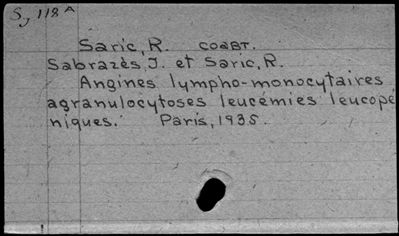 S, 118 A
Saric, R. COABT.
Sabrazès, J. et Saric, R.
Angines lympho-monocytaires
agranulocytoses leucémies leucopé
niques. Paris, 1935.